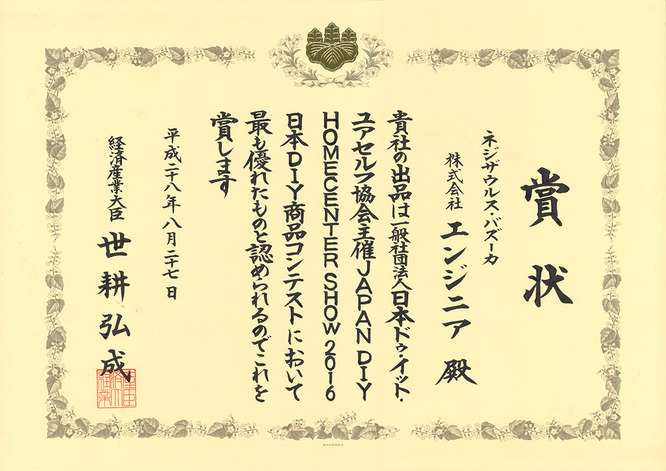 賞状
ネジザウルス・バズーカ
株式会社 エンジニア 殿
貴社の出品は一般社団法人日本ドゥ・イット・
ユアセルフ協会主催JAPAN DIY
HOMECENTER SHOW 2016
日本DIY商品コンテストにおいて
最も優れたものと認められるのでこれを
賞します
平成二十八年八月二十七日
経済産業大臣 世耕弘成